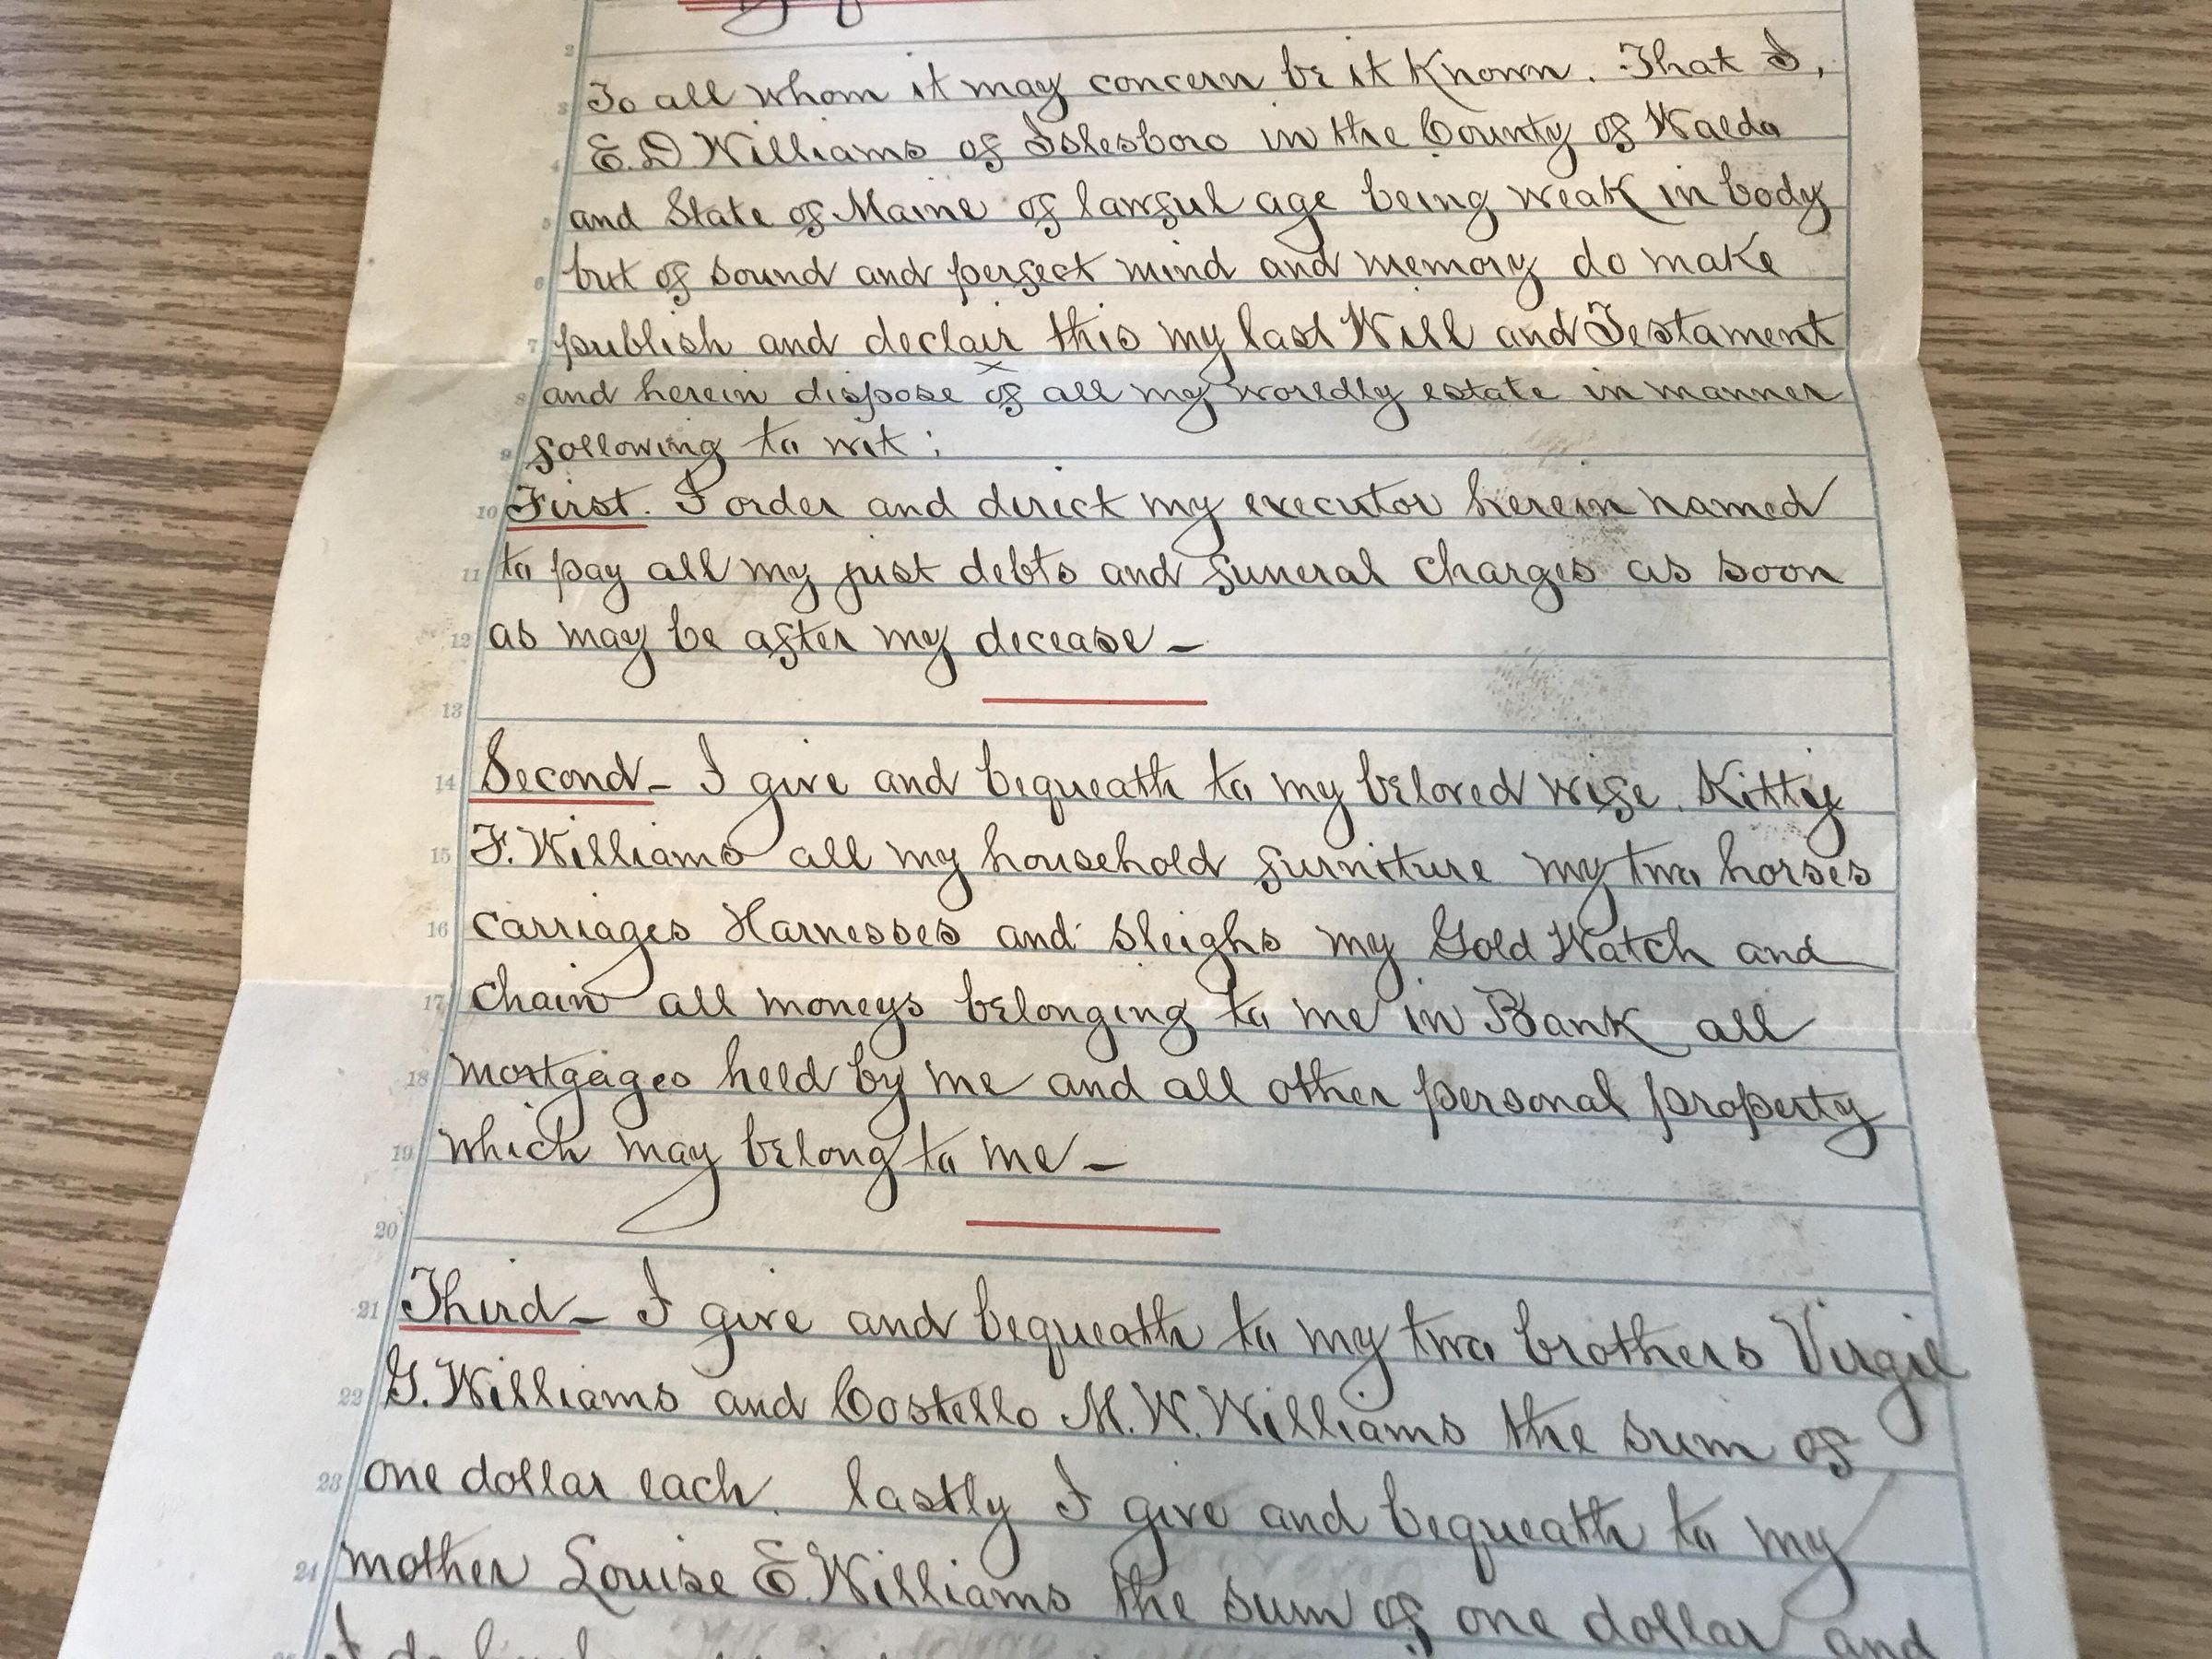 2
3 To all whom it may concern be it Known. That I,
4 E. D Williams of Islesboro in the County of Waldo
5 and State of Maine of lawful age being weak in body
6 but of sound and perfect mind and memory do make
7 publish and declair this my last Will and Testament
8 and herein dispose of all my worldly estate in manner
9 following to wit;
10 First. I order and direct my executor herein named
11 to pay all my just debts and funeral charges as soon
12 as may be after my decease –
13
14 Second – I give and bequeath to my beloved wife. Kitty
15 F. Williams all my household furniture my two horses
16 carriages Harnesses and sleighs my Gold Watch and
17 chain all moneys belonging to me in Bank all
18 mortgages held by me and all other personal property
19 which may belong to me –
20
21 Third – I give and bequeath to my two brothers Virgil
22 G. Williams and Costello M. W. Williams the sum of
23 one dollar each. lastly I give and bequeath to my
24 mother Louise E. Williams the sum of one dollar and
I do